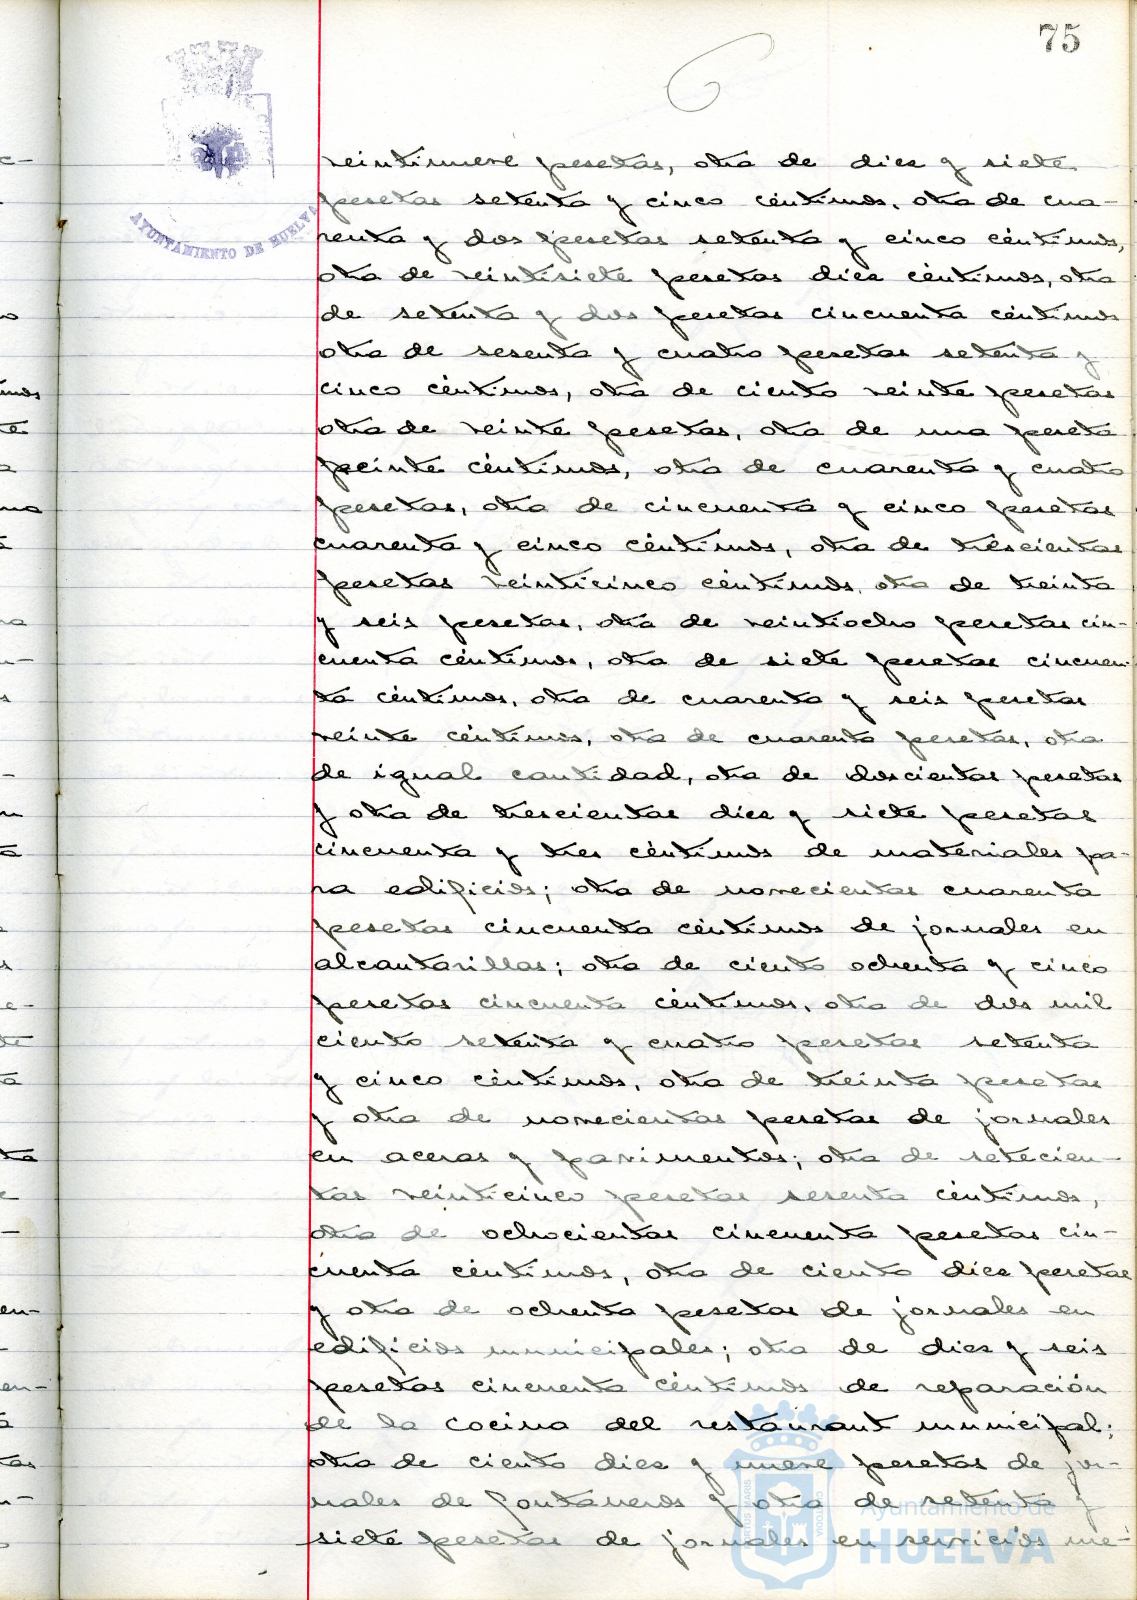 75
AYUNTAMIENTO DE HUELVA
veintinueve pesetas, otra de diez y siete
pesetas setenta y cinco céntimos, otra de cua-
renta y dos pesetas setenta y cinco céntimos,
otra de veintisiete pesetas diez céntimos, otra
de setenta y dos pesetas cincuenta céntimos
otra de sesenta y cuatro pesetas setenta y
cinco céntimos, otra de ciento veinte pesetas
otra de veinte pesetas, otra de una peseta
veinte céntimos, otra de cuarenta y cuatro
pesetas, otra de cincuenta y cinco pesetas
cuarenta y cinco céntimos, otra de trescientas
pesetas veinticinco céntimos, otra de treinta
y seis pesetas, otra de veintiocho pesetas cin-
cuenta céntimos, otra de siete pesetas cincuen-
ta céntimos, otra de cuarenta y seis pesetas
veinte céntimos, otra de cuarenta pesetas, otra
de igual cantidad, otra de doscientas pesetas
y otra de trescientas diez y siete pesetas
cincuenta y tres céntimos de materiales pa-
ra edificios; otra de novecientas cuarenta
pesetas cincuenta céntimos de jornales en
alcantarillas; otra de ciento ochenta y cinco
pesetas cincuenta céntimos, otra de dos mil
ciento setenta y cuatro pesetas setenta
y cinco céntimos, otra de treinta pesetas
y otra de novecientas pesetas de jornales
en aceras y pavimentos; otra de setecien-
tas veinticinco pesetas sesenta céntimos,
otra de ochocientas cincuenta pesetas cin-
cuenta céntimos, otra de ciento diez pesetas
y otra de ochenta pesetas de jornales en
edificios municipales; otra de diez y seis
pesetas cincuenta céntimos de reparación
de la cocina del restaurant municipal;
otra de ciento diez y nueve pesetas de jor-
nales de fontaneros y otra de setenta y
siete pesetas de jornales en servicios me-
Ayuntamiento de
HUELVA